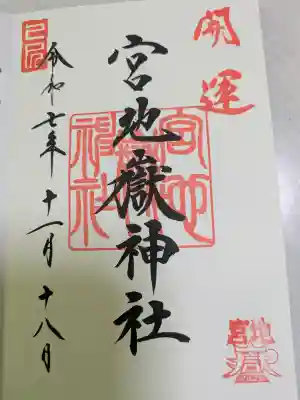 開運
宮地嶽神社
令和七年十一月十八日
宮地嶽神社
宮地嶽